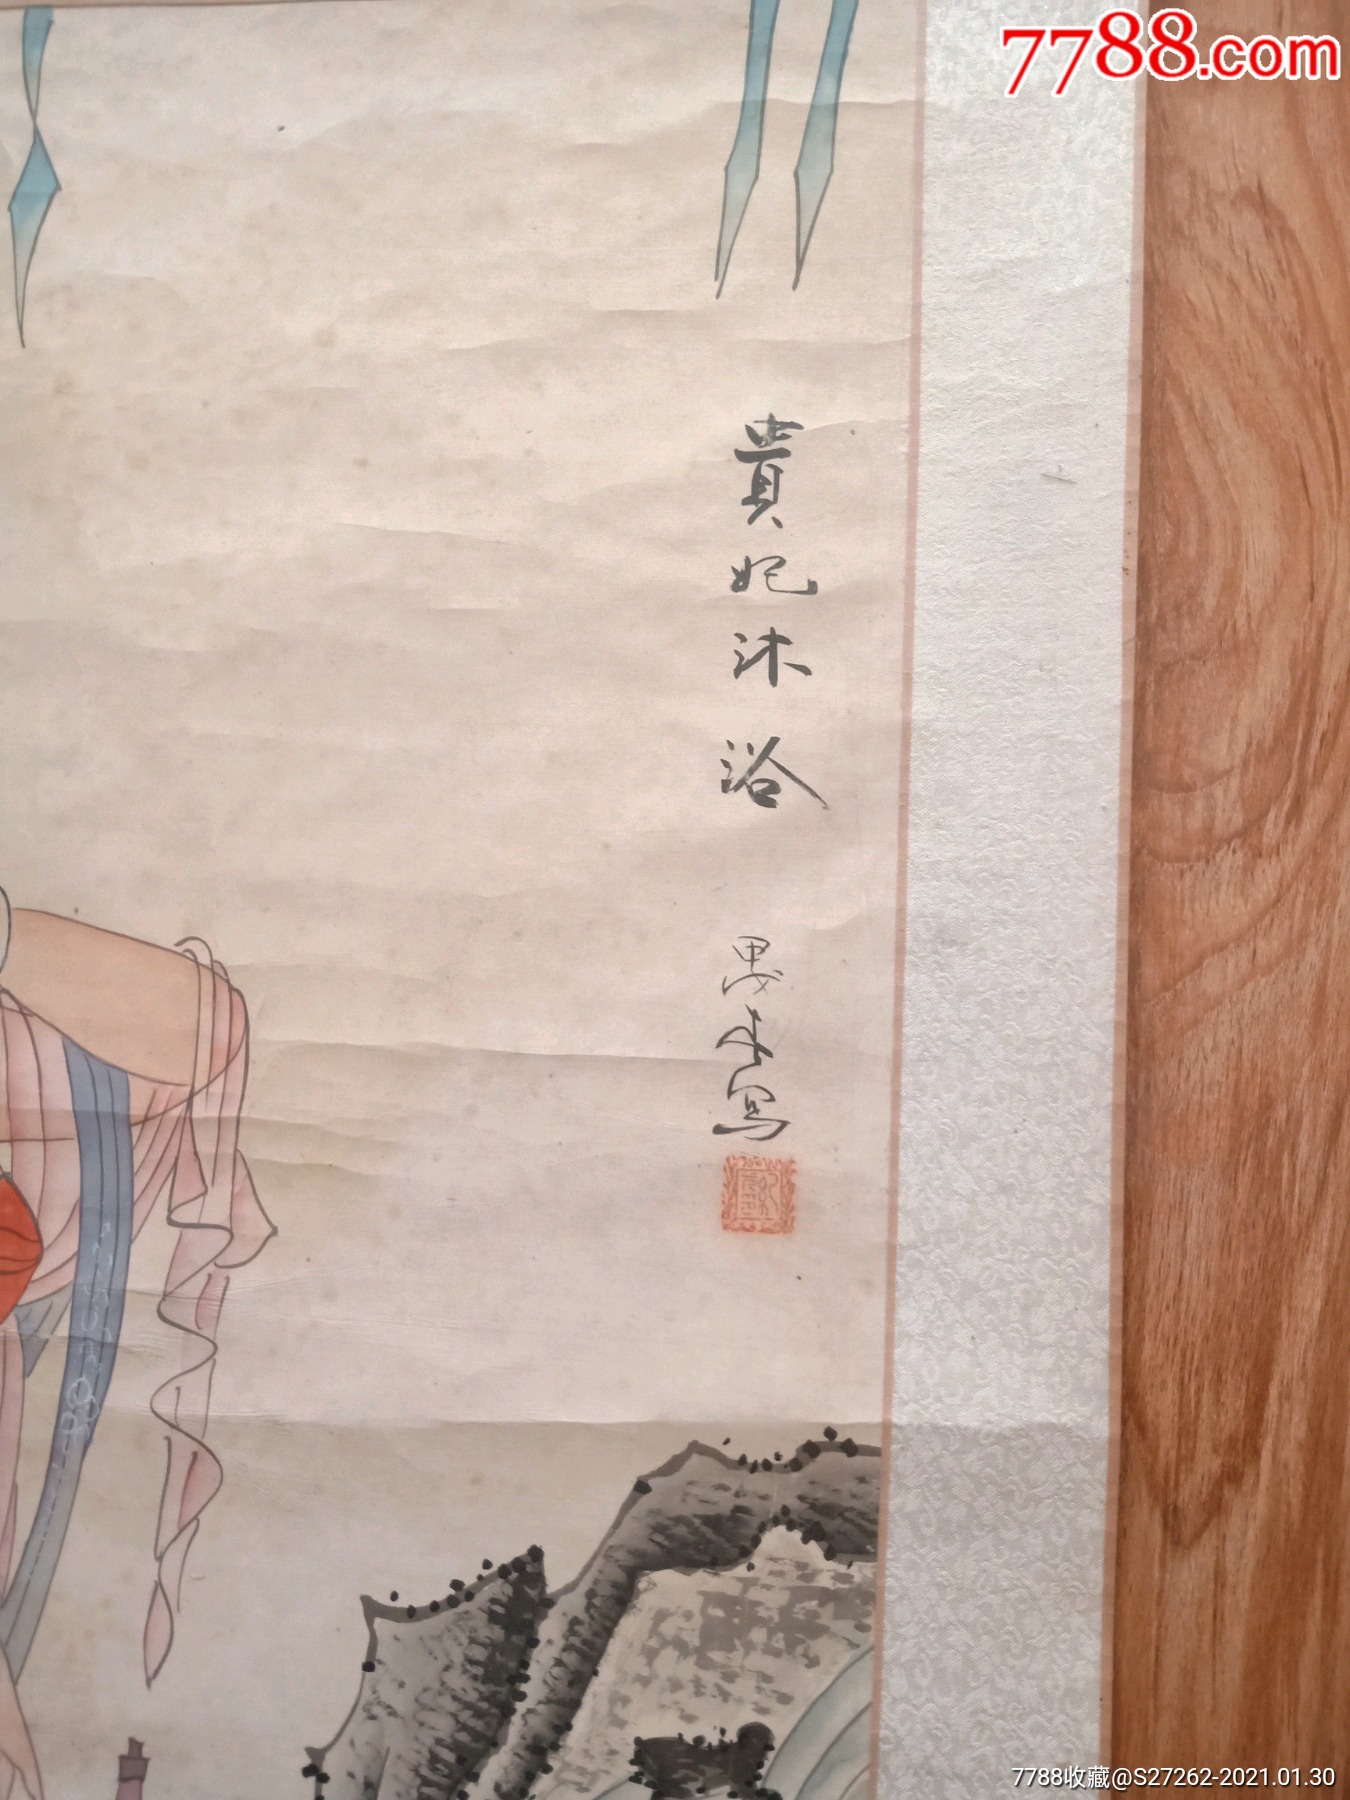 7788.com
貴妃沐浴
写
7788收藏@S27262-2021.01.30